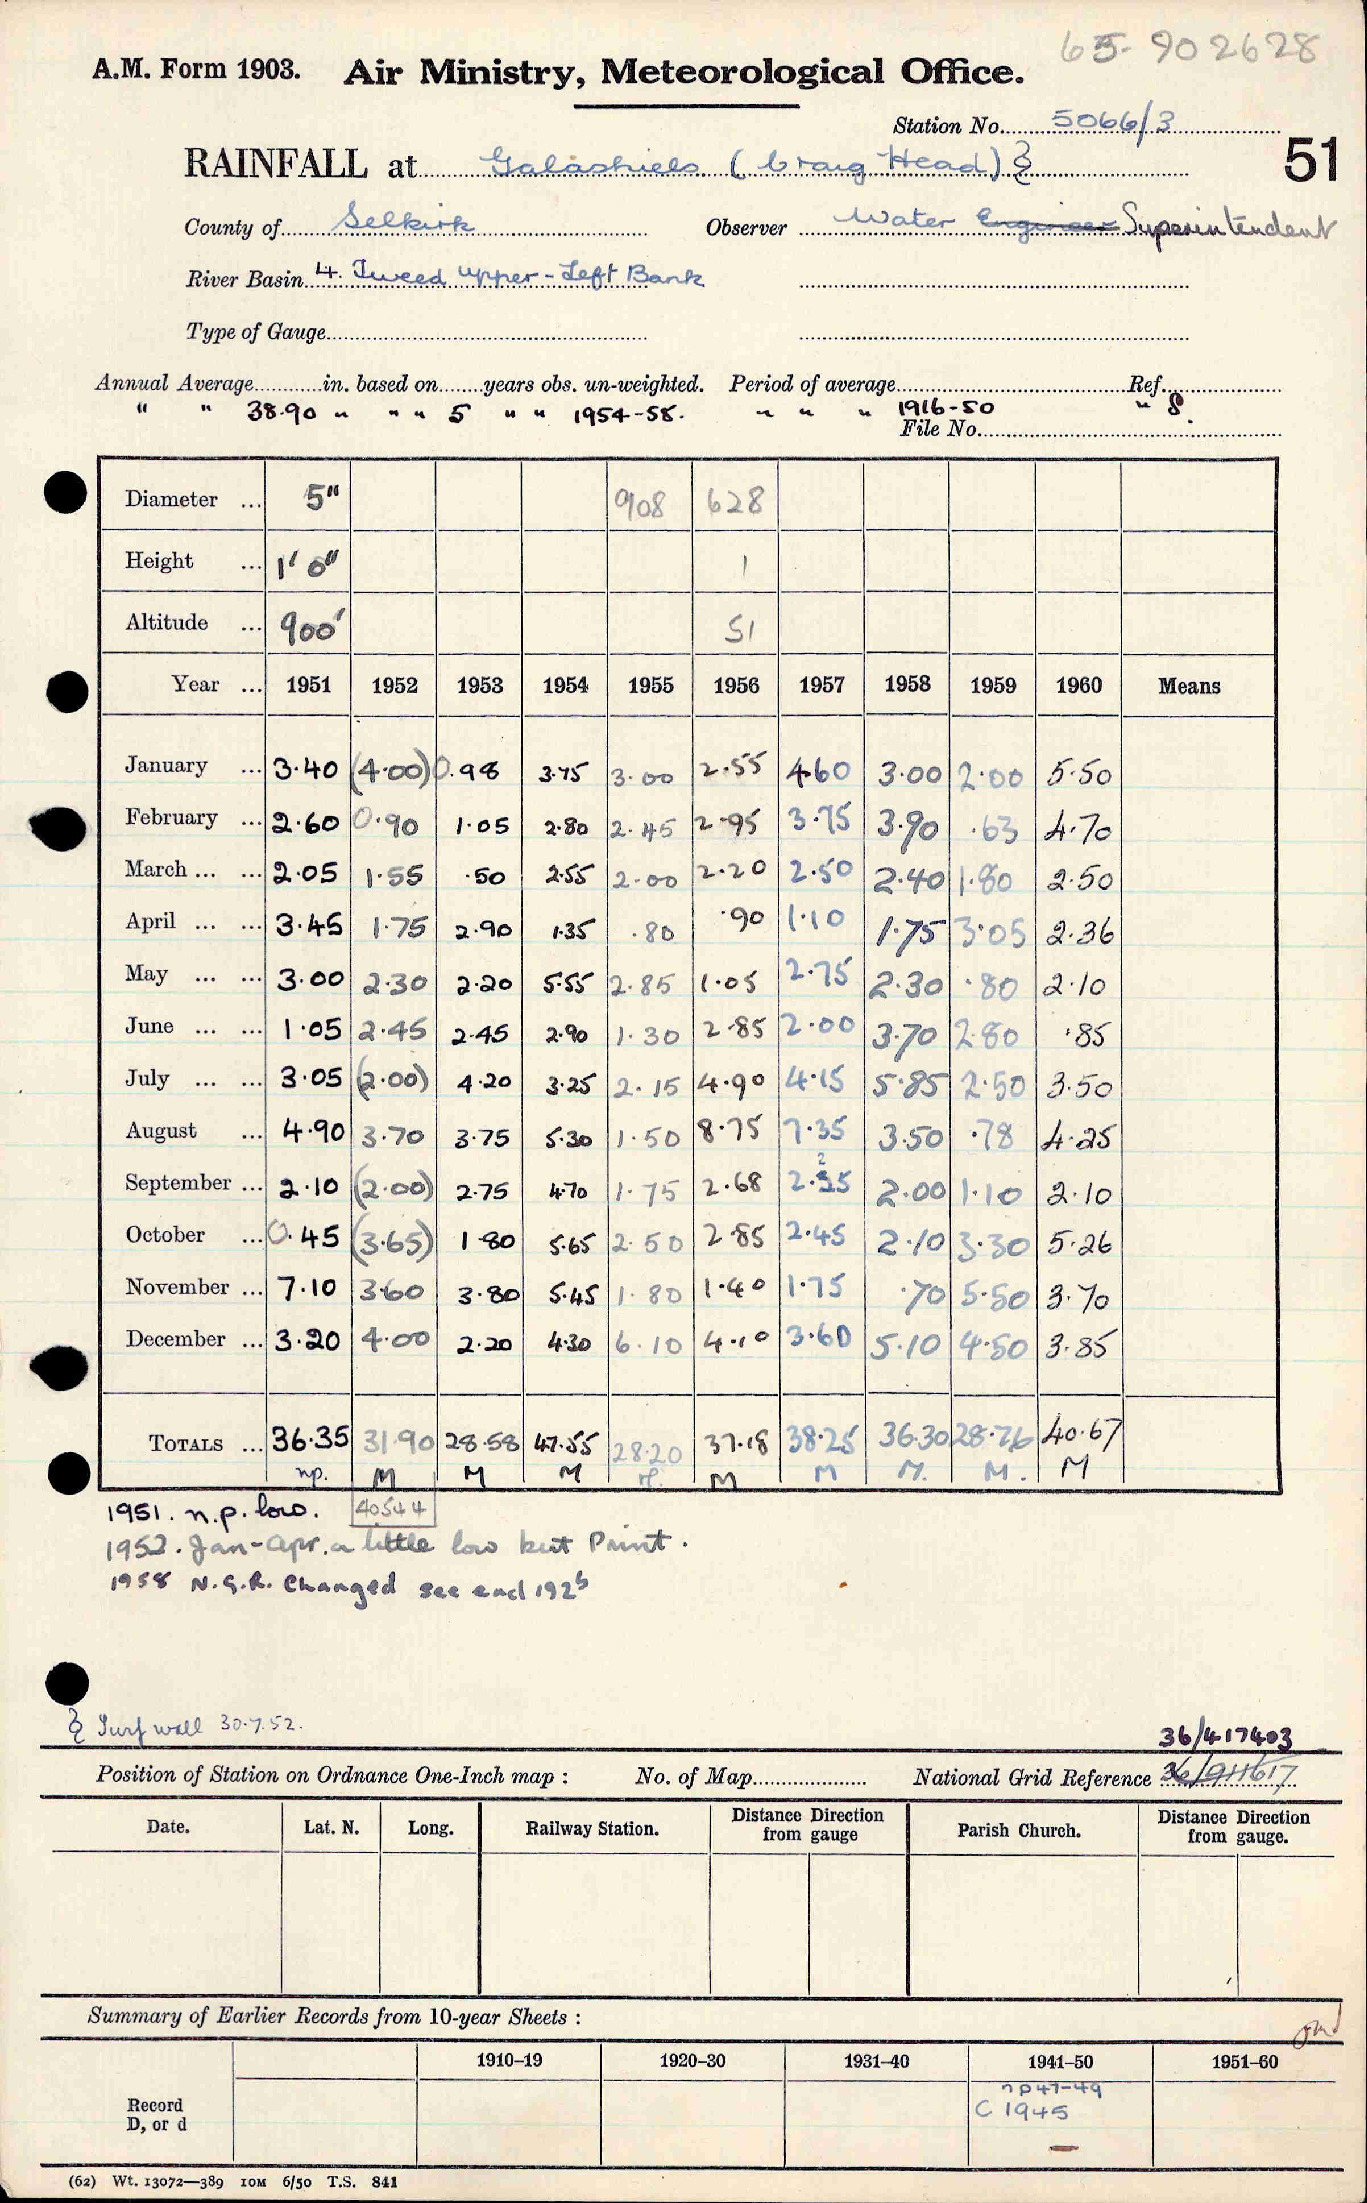 65- 902628
A.M. Form 1903. Air Ministry, Meteorological Office.
Station No. 5066/3
RAINFALL at Galashiels (Craig Head) }
51
County of Selkirk Observer Water Engineer Superintendent
River Basin 4. Tweed Upper - Left Bank
Type of Gauge
Annual Average in. based on years obs. un-weighted. Period of average Ref.
" " 38.90 " " " 5 " " 1954-58. " " " 1916-50 " 8.
File No.
Diameter ... 5" 908 628
Height ... 1' 0" 1
Altitude ... 900' 51
Year ... 1951 1952 1953 1954 1955 1956 1957 1958 1959 1960 Means
January ... 3.40 (4.00) 0.98 3.75 3.00 2.55 4.60 3.00 2.00 5.50
February ... 2.60 0.90 1.05 2.80 2.45 2.95 3.75 3.90 .63 4.70
March ... ... 2.05 1.55 .50 2.55 2.00 2.20 2.50 2.40 1.80 2.50
April ... ... 3.45 1.75 2.90 1.35 .80 .90 1.10 1.75 3.05 2.36
May ... ... 3.00 2.30 2.20 5.55 2.85 1.05 2.75 2.30 .80 2.10
June ... ... 1.05 2.45 2.45 2.90 1.30 2.85 2.00 3.70 2.80 .85
July ... ... 3.05 (2.00) 4.20 3.25 2.15 4.90 4.15 5.85 2.50 3.50
August ... 4.90 3.70 3.75 5.30 1.50 8.75 7.35 3.50 .78 4.25
September ... 2.10 (2.00) 2.75 4.70 1.75 2.68 2.25 2.00 1.10 2.10
October ... 0.45 (3.65) 1.80 5.65 2.50 2.85 2.45 2.10 3.30 5.26
November ... 7.10 3.60 3.80 5.45 1.80 1.40 1.75 .70 5.50 3.70
December ... 3.20 4.00 2.20 4.30 6.10 4.10 3.60 5.10 4.50 3.85
TOTALS ... 36.35 31.90 28.58 47.55 28.20 37.18 38.25 36.30 28.76 40.67
np. M M M M. M M M. M. M
1951. n.p. low. 40544
1952. Jan-Apr. a little low but Print.
1958 N.G.R. Changed see end 1926
} Turf wall 30.7.52.
36/417403
Position of Station on Ordnance One-Inch map : No. of Map National Grid Reference 36/911617
Date. Lat. N. Long. Railway Station. Distance Direction from gauge Parish Church. Distance Direction from gauge.
Summary of Earlier Records from 10-year Sheets :
1910-19 1920-30 1931-40 1941-50 1951-60
Record
D, or d
np 47-49
C 1945
(62) Wt. 13072—389 10M 6/50 T.S. 841